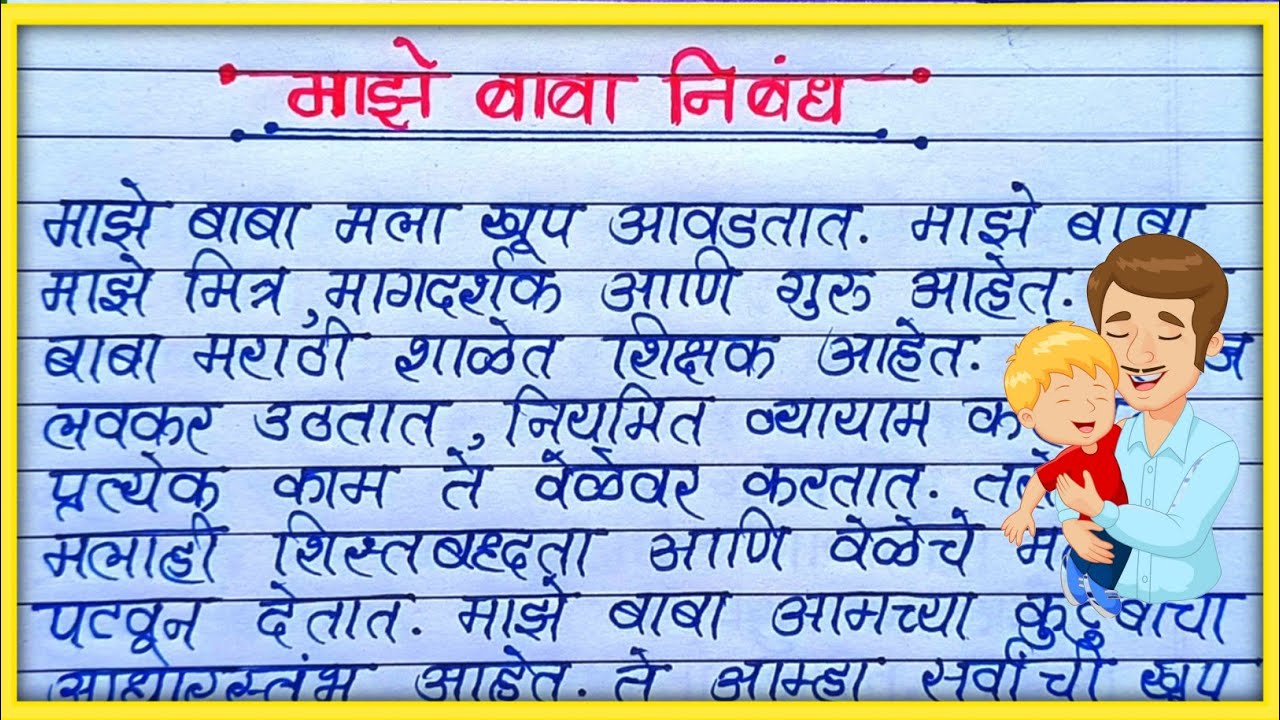 माझे बाबा निबंध
माझे बाबा मला खूप आवडतात. माझे बाबा
माझे मित्र, मागदर्शक आणि गुरु आहेत.
बाबा मराठी शाळेत शिक्षक आहेत.
लवकर उठतात, नियमित व्यायाम
प्रत्येक काम ते वेळेवर करतात.
मलाही शिस्तबद्दता आणि वेळेचे
पटवून देतात. माझे बाबा आमच्या कुटुंबाचा
आधारस्तंभ आहेत. ते आम्हा सर्वांची खूप